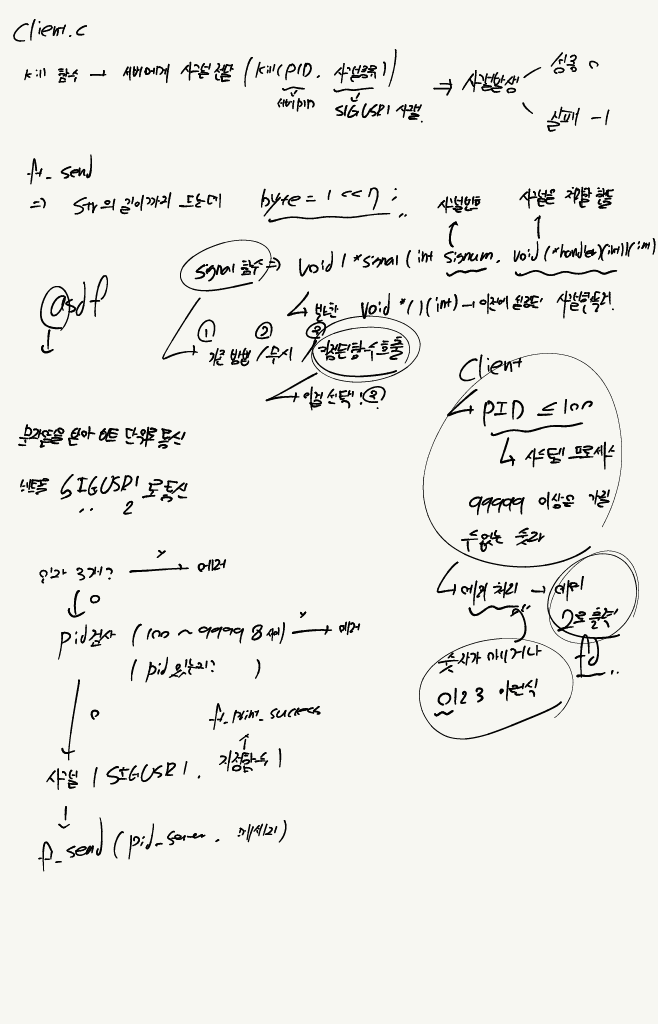 Client.c
kill 함수 → 서버에게 시그널 전달 (kill(PID, 시그널종류)) ⇒ 시그널발생
성공 0
실패 -1
서버PID
SIGUSR1 시그널.
ft_send
⇒ Str의 길이까지 도는데 byte = 1 << 7 ;
시그널번호
시그널을 처리할 핸들
signal 함수 ⇒ void (*signal (int signum, void (*handler)(int))(int)
asdf
반환 void *()(int) → 이전에 설정된 시그널핸들러.
① ② ③
기본 방법 / 무시 / 지정된함수호출
이걸 선택! ③
Client
PID ≤ 100
시스템 프로세스
99999 이상은 가질
수 없는 숫자
문자열을 받아 비트 단위로 통신
SIGUSR1 로 통신
2
인자 3개? x → 에러
0
pid검사 (100 ~ 99999 사이) x → 에러
( pid 있는지? )
0
예외 처리 → 에러
2로 출력
fd
숫자가 아니거나
0123 이런식
ft_print_success
지정함수
시그널 ( SIGUSR1, )
ft_send (pid_server, 메세지)